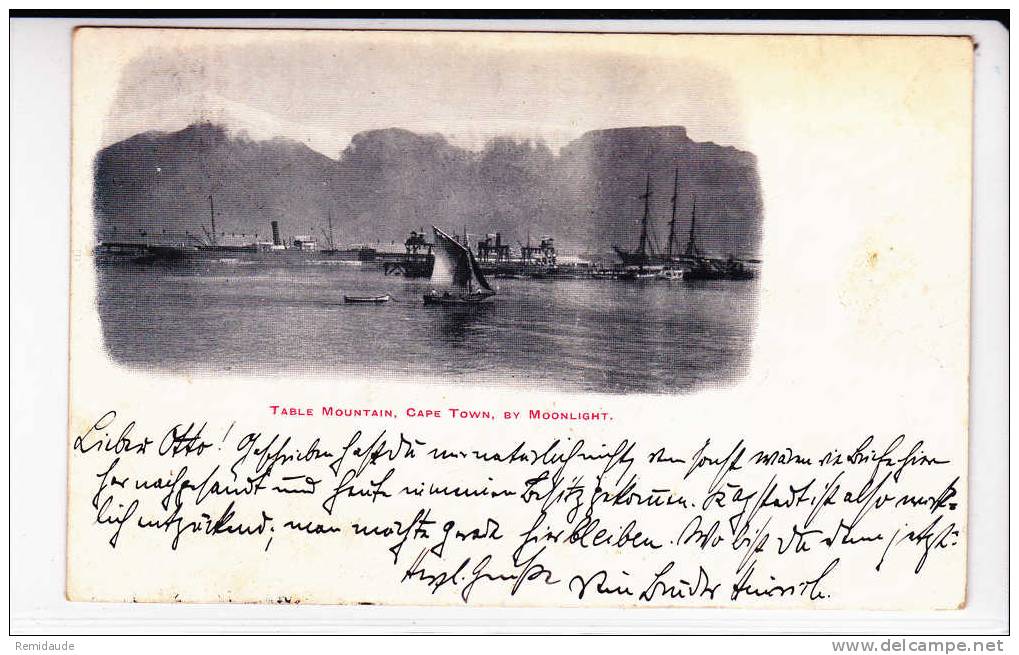 TABLE MOUNTAIN, CAPE TOWN, BY MOONLIGHT.
Lieber Otto! Geschrieben hast Du mir natürlich nicht, denn sonst wären die Briefe hier
her nachgesandt und heute in meinen Besitz gekommen. Kapstadt ist also wirk-
lich entzückend; man möchte gerade hierbleiben. Wo bist Du denn jetzt?
Herzl. Grüße Dein Bruder Heinrich.
Remidaude
www.delcampe.net